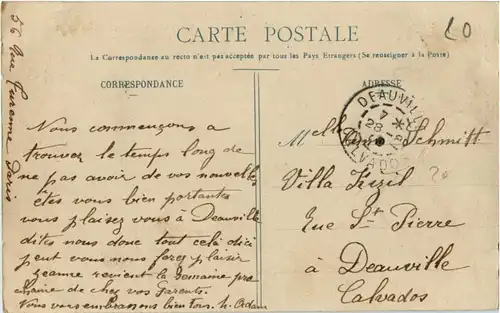 CARTE POSTALE
La Correspondance au recto n'est pas acceptée par tous les Pays Etrangers (Se renseigner à la Poste)
CORRESPONDANCE
Nous commençons a
trouvez le temps long de
ne pas avoir de vos nouvelles
êtes vous bien portantes
vous plaisez vous à Deauville
dites nous donc tout celà
peut vous nous ferez plaisir
jeanne revient la semaine pro
chaine de chez vos Parents.
Nous vous embrassons bien tous. h. Adam
56 Rue Turenne Paris
ADRESSE
Melle Schmitt
Villa
Rue St Pierre
à Deauville
Calvados
DEAUVILLE
7 *
28 -8
CALVADOS